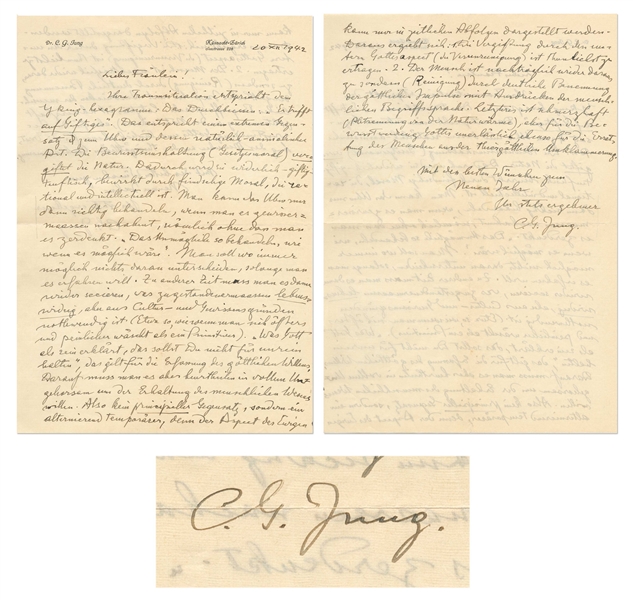 Dr. C. G. Jung
Küsnacht-Zürich
Seestrasse 228
20 XII 1942
Liebes Fräulein!
Ihre Transmutation entspricht den
Yking-hexagramm: Das Durchbeissen: „Er trifft
auf Giftiges". Das entspricht einem extremen Gegen-
satz z. dem Ubw und dessen natürlich-animalischer
Art. Die Bewusstseinshaltung (Gesetzmoral) ver-
giftet die Natur. Dadurch wird sie widerlich-giftig
bewirkt durch feindselige Moral, die ra-
tional und intellektuell ist. Man kann das Ubw nur
dann richtig behandeln, wenn man es
nachahmt, nämlich ohne dass man
es zerdenkt. „Das Unmögliche so behandeln, wie
wenn es möglich wäre". Man soll wo immer
möglich nichts daran unterscheiden, solange man
es erfahren will. Zu anderer Zeit muss man es dann
wieder secieren, was zugestandenermassen lebens-
widrig, aber aus Cultur- und Gewissensgründen
notwendig ist. (Etwa so, wie wenn man sich öfters
und peinlicher wäscht als ein Primitiver). „Was Gott
als rein erklärt, das sollst Du nicht für unrein
halten", das gilt für die Erfahrung des göttlichen Willens.
Darauf muss man es aber beurtheilen in vollem Un-
gehorsam um der Erhaltung des menschlichen Wesens
willen. Also kein principieller Gegensatz, sondern ein
alternierend temporärer, denn der Aspect des Ewigen
kann nur in zeitlichen Abfolgen dargestellt werden.
Daraus ergiebt sich: 1. Die Vergiftung durch den
Gottesaspect (die Verunreinigung) ist
ertragen. 2. Der Mensch ist nachträglich wieder davon
zu sondern (Reinigung) durch deutliche Benennung
der göttlichen Impulse mit Ausdrücken der mensch-
lichen Begriffssprache. Letzteres ist schmerzhaft
(Abtrennung von der Naturwärme), aber für die Be-
wusstwerdung Gottes unerlässlich, ebenso für die
des Menschen aus der Umklammerung.
Mit den besten Wünschen zum
Neuen Jahr
Ihr stets ergebener
C. G. Jung.
C. G. Jung.
s zerdenkt. „